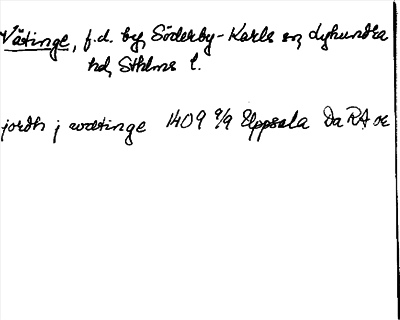 Västinge, f.d. by, Söderby-Karls sn, Lyhundra
hd, Sthlms l.
jordh j wætinge 1409 9/9 Uppsala Da RA or